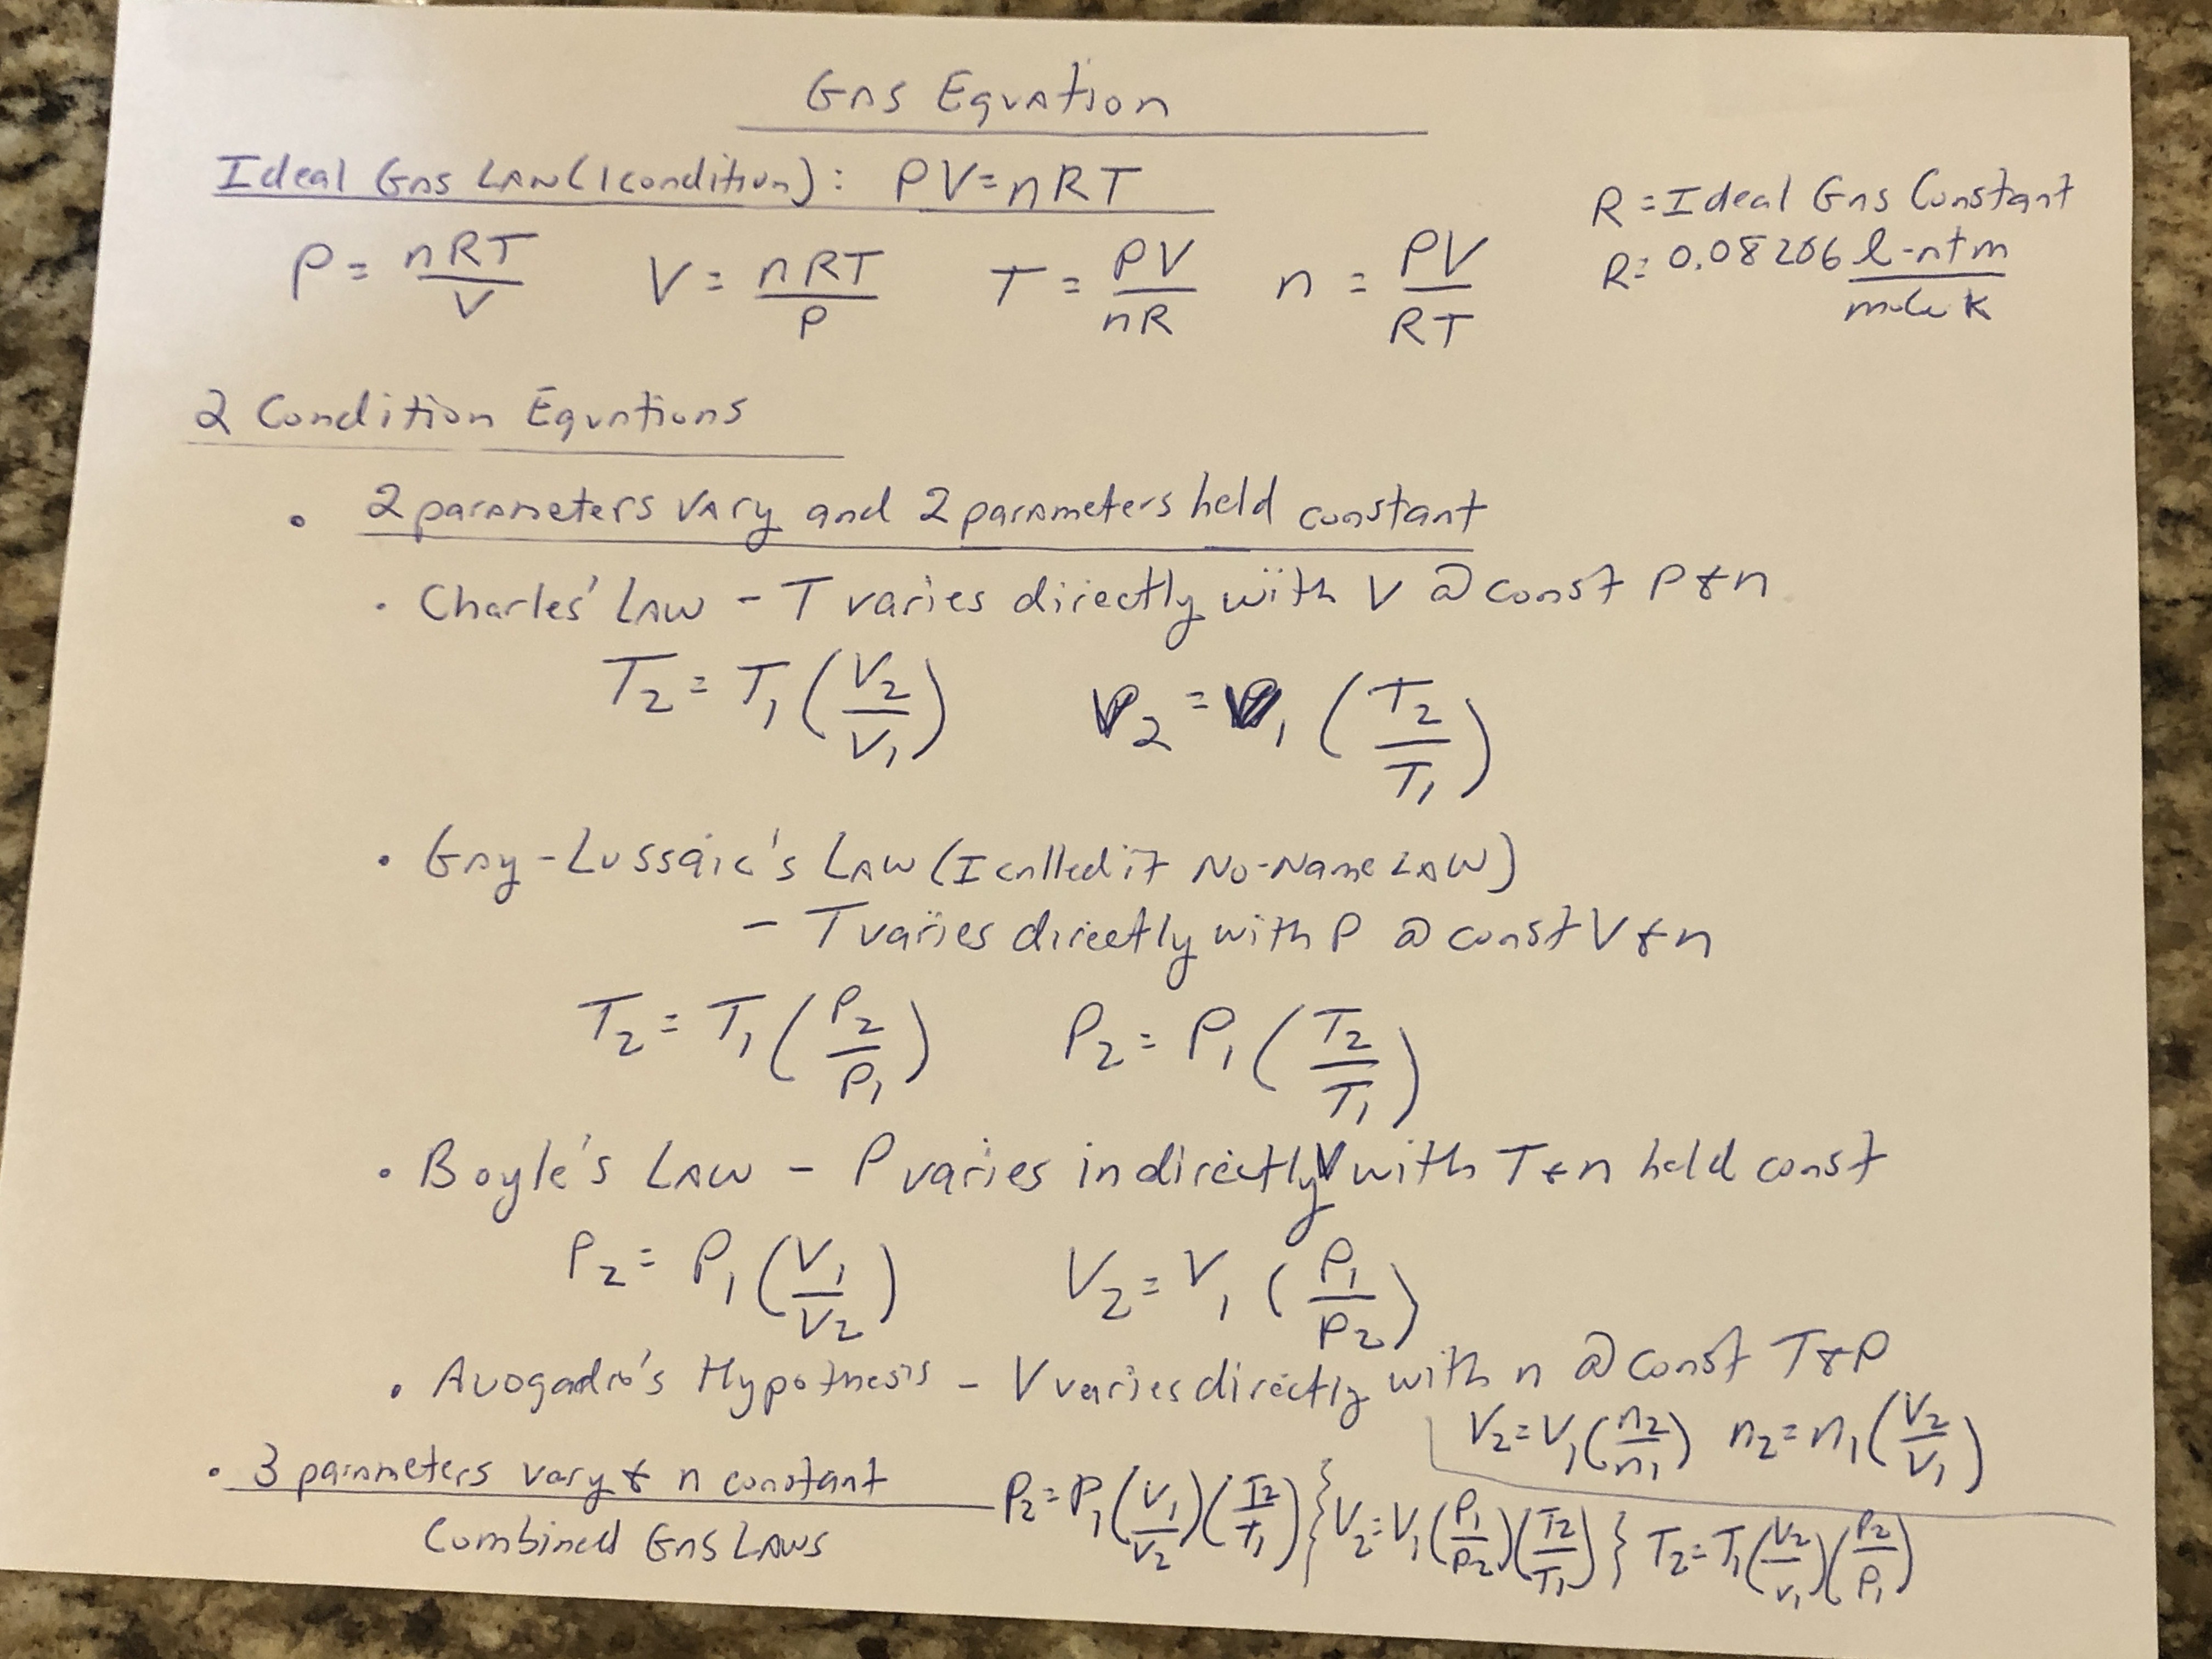 Gas Equation
Ideal Gas Law (1 condition): PV = nRT
R = Ideal Gas Constant
R = 0.08206 l-atm / mole K
P = nRT/V   V = nRT/P   T = PV/nR   n = PV/RT
2 Condition Equations
• 2 parameters vary and 2 parameters held constant
• Charles' Law - T varies directly with V @ const P & n
T₂ = T₁ (V₂/V₁)   V₂ = V₁ (T₂/T₁)
• Gay-Lussaic's Law (I called it No-Name Law)
- T varies directly with P @ const V & n
T₂ = T₁ (P₂/P₁)   P₂ = P₁ (T₂/T₁)
• Boyle's Law - P varies indirectly V with T & n held const
P₂ = P₁ (V₁/V₂)   V₂ = V₁ (P₁/P₂)
• Avogadro's Hypothesis - V varies directly with n @ const T & P
V₂ = V₁ (n₂/n₁)   n₂ = n₁ (V₂/V₁)
• 3 parameters vary & n constant
Combined Gas Laws
P₂ = P₁ (V₁/V₂)(T₂/T₁) } V₂ = V₁ (P₁/P₂)(T₂/T₁) } T₂ = T₁ (V₂/V₁)(P₂/P₁)